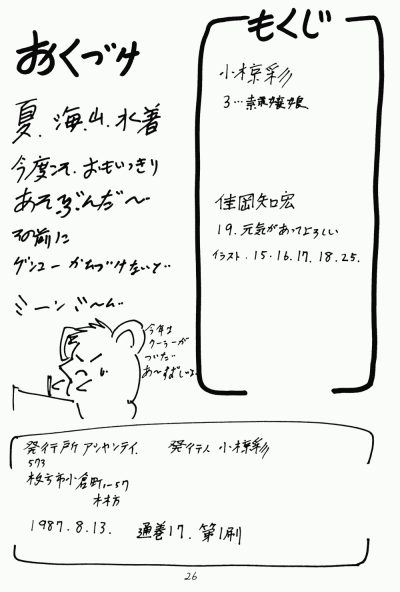 もくじ
小椋彩
3…素裸嬢娘
佳岡知宏
19.元気があってよろしい
イラスト.15.16.17.18.25.
おくづけ
夏.海.山.水着
今度こそ.おもいっきり
あそぶんだ〜
その前に
ゲンコーかたづけないと…
ミーンミ〜ン
今年は
クーラーが
ついた
発行所 アンヤンテイ.
発行人 小椋彩
573
枚方市小倉町11-57
1987.8.13. 通巻17. 第1刷
26